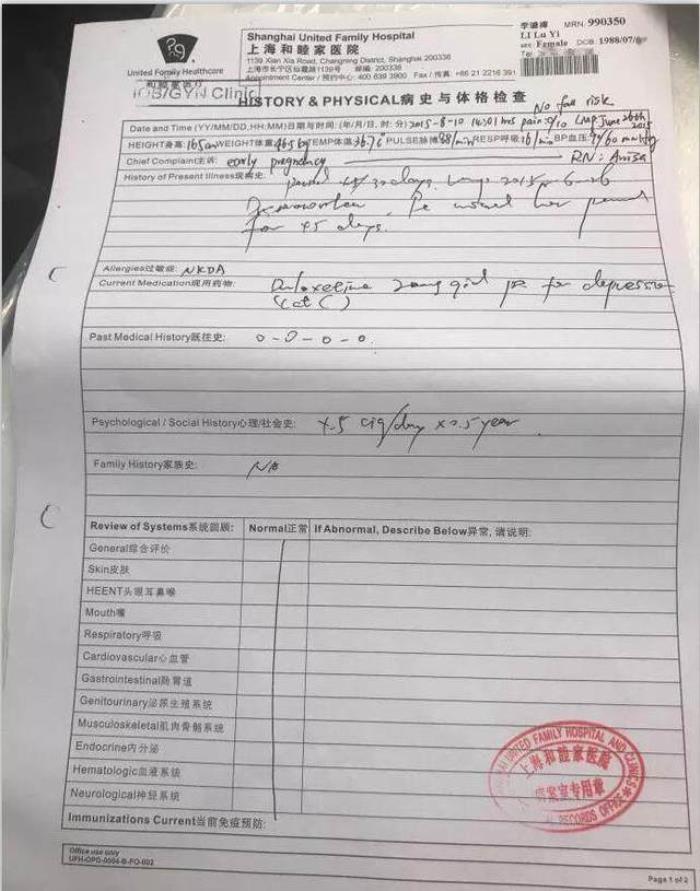 Shanghai United Family Hospital
上海和睦家医院
1139 Xian Xia Road, Changning District, Shanghai 200336
上海市长宁区仙霞路1139号 邮编: 200336
Appointment Center / 预约中心: 400 639 3900 Fax / 传真: +86 21 2216 391
United Family Healthcare
和睦家医疗
MRN: 990350
LI Lu Yi
sex: Female DOB: 1988/07/
OBS/GYN Clinic
HISTORY & PHYSICAL病史与体格检查
No fall risk
Date and Time (YY/MM/DD,HH:MM)日期与时间: (年/月/日, 时: 分) 2015-8-10 14:01 hrs pain: 0/10 LMP June 26th 2015
HEIGHT身高: 165cm WEIGHT体重 46.5kg TEMP体温 36.7℃ PULSE脉搏 88/min RESP呼吸 16/min BP血压 /60 mmHg
Chief Complaint主诉: early pregnancy RN: Anisa
History of Present Illness现病史: days. 2015-6-26
for 45 days.
Allergies过敏症: NKDA
Current Medication现用药物: Duloxetine 20mg qid for depression
(cat C)
Past Medical History既往史: 0-0-0-0.
Psychological / Social History心理/社会史: cig/day year
Family History家族史:
Review of Systems系统回顾: Normal正常 If Abnormal, Describe Below异常, 请说明:
General综合评价
Skin皮肤
HEENT头眼耳鼻喉
Mouth嘴
Respiratory呼吸
Cardiovascular心血管
Gastrointestinal肠胃道
Genitourinary泌尿生殖系统
Musculoskeletal肌肉骨骼系统
Endocrine内分泌
Hematologic血液系统
Neurological神经系统
Immunizations Current当前免疫预防:
UNITED FAMILY HOSPITAL AND CLINICS
上海和睦家医院
病案室专用章
RECORDS OFFICE
Office use only
UFH-OPD-0004-B-FO-002
Page 1 of 2